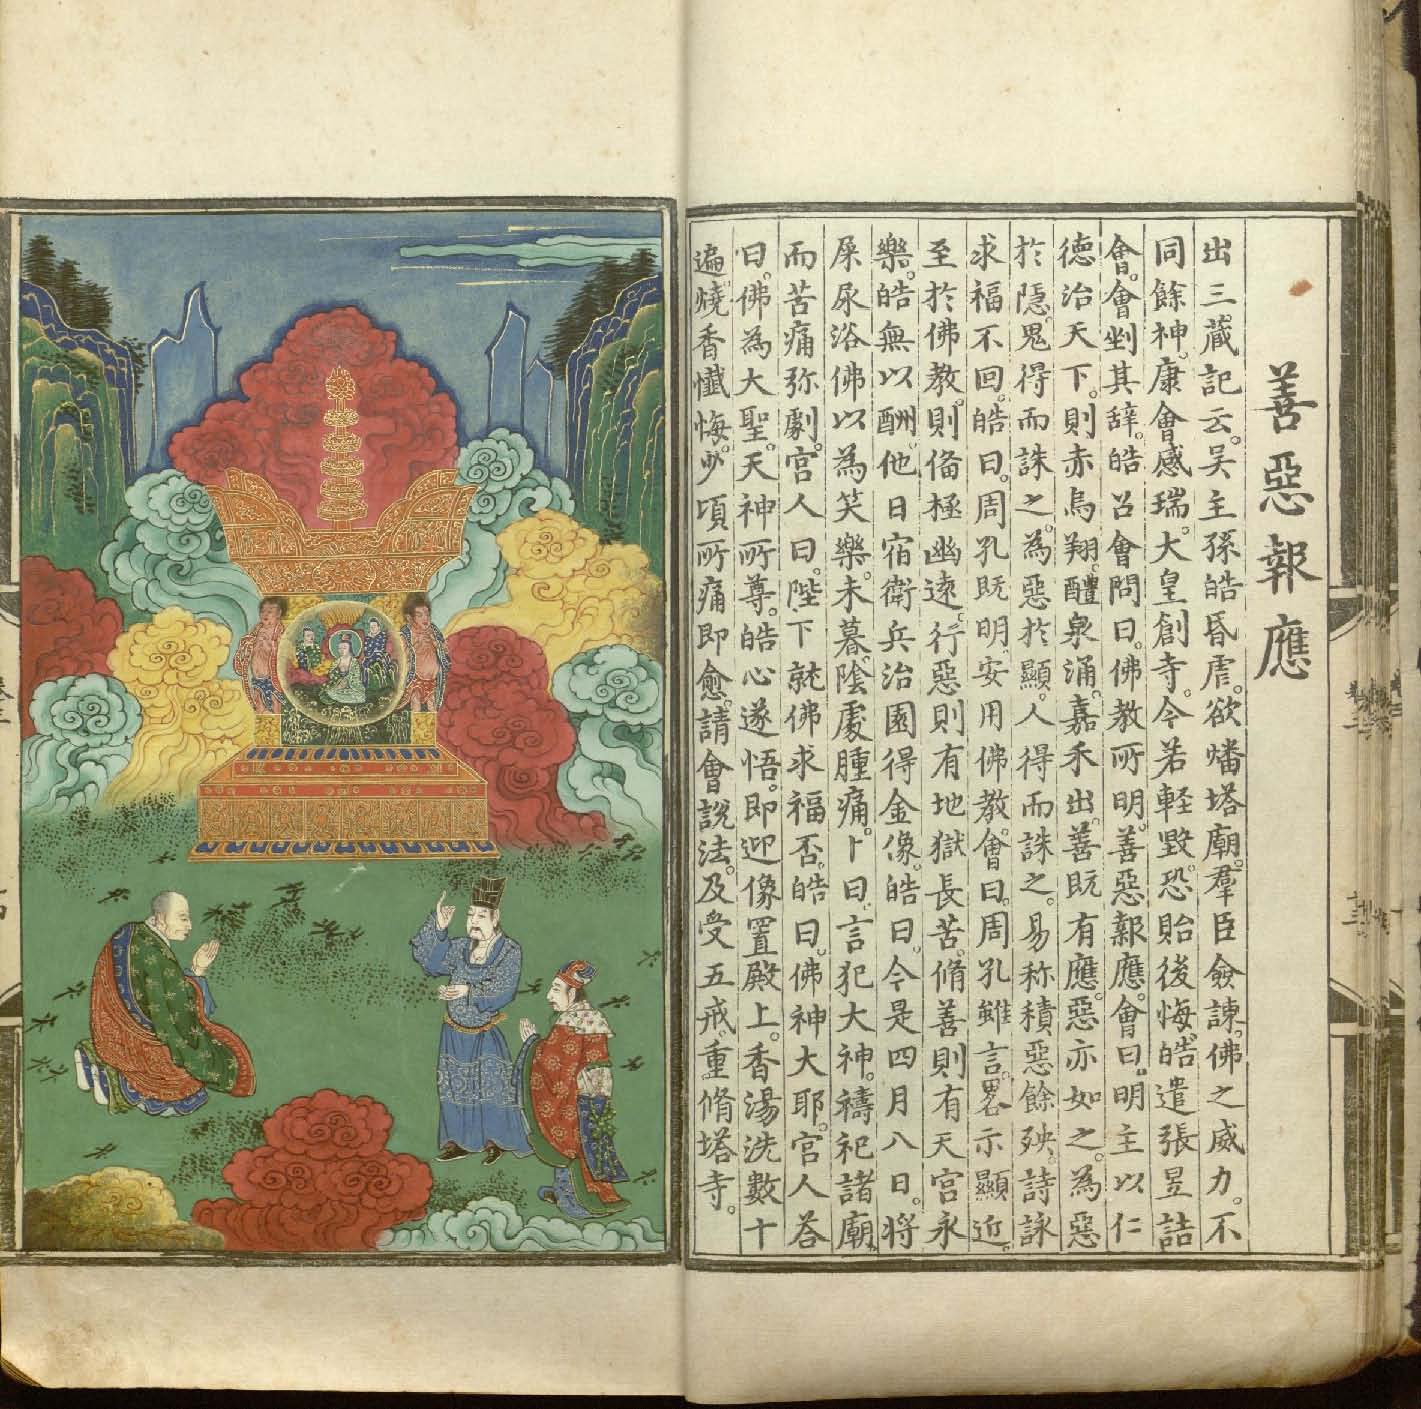 善惡報應
出三藏記云。吴主孫皓昏虐。欲燔塔廟。羣臣僉諫。佛之威力。不
同餘神。康會感瑞。大皇創寺。今若輕毀。恐貽後悔。皓遣張昱詰
會。會剉其辭。皓召會問曰。佛教所明。善惡報應。會曰。明主以仁
德治天下。則赤烏翔。醴泉涌。嘉禾出。善既有應。惡亦如之。為惡
於隱。鬼得而誅之。為惡於顯。人得而誅之。易称積惡餘殃。詩詠
求福不回。皓曰。周孔既明。安用佛教。會曰。周孔雖言。畧示顯近。
至於佛教。則俻極幽遠。行惡則有地獄長苦。脩善則有天宮永
樂。皓無以酬。他日宿衛兵治園得金像。皓曰。今是四月八日。將
屎尿浴佛以為笑樂。未暮。陰處腫痛。卜曰。言犯大神。禱祀諸廟。
而苦痛弥劇。宮人曰。陛下就佛求福否。皓曰。佛神大耶。宮人荅
曰。佛為大聖。天神所尊。皓心遂悟。即迎像置殿上。香湯洗數十
遍。燒香懺悔。少頃所痛即愈。請會說法。及受五戒。重脩塔寺。